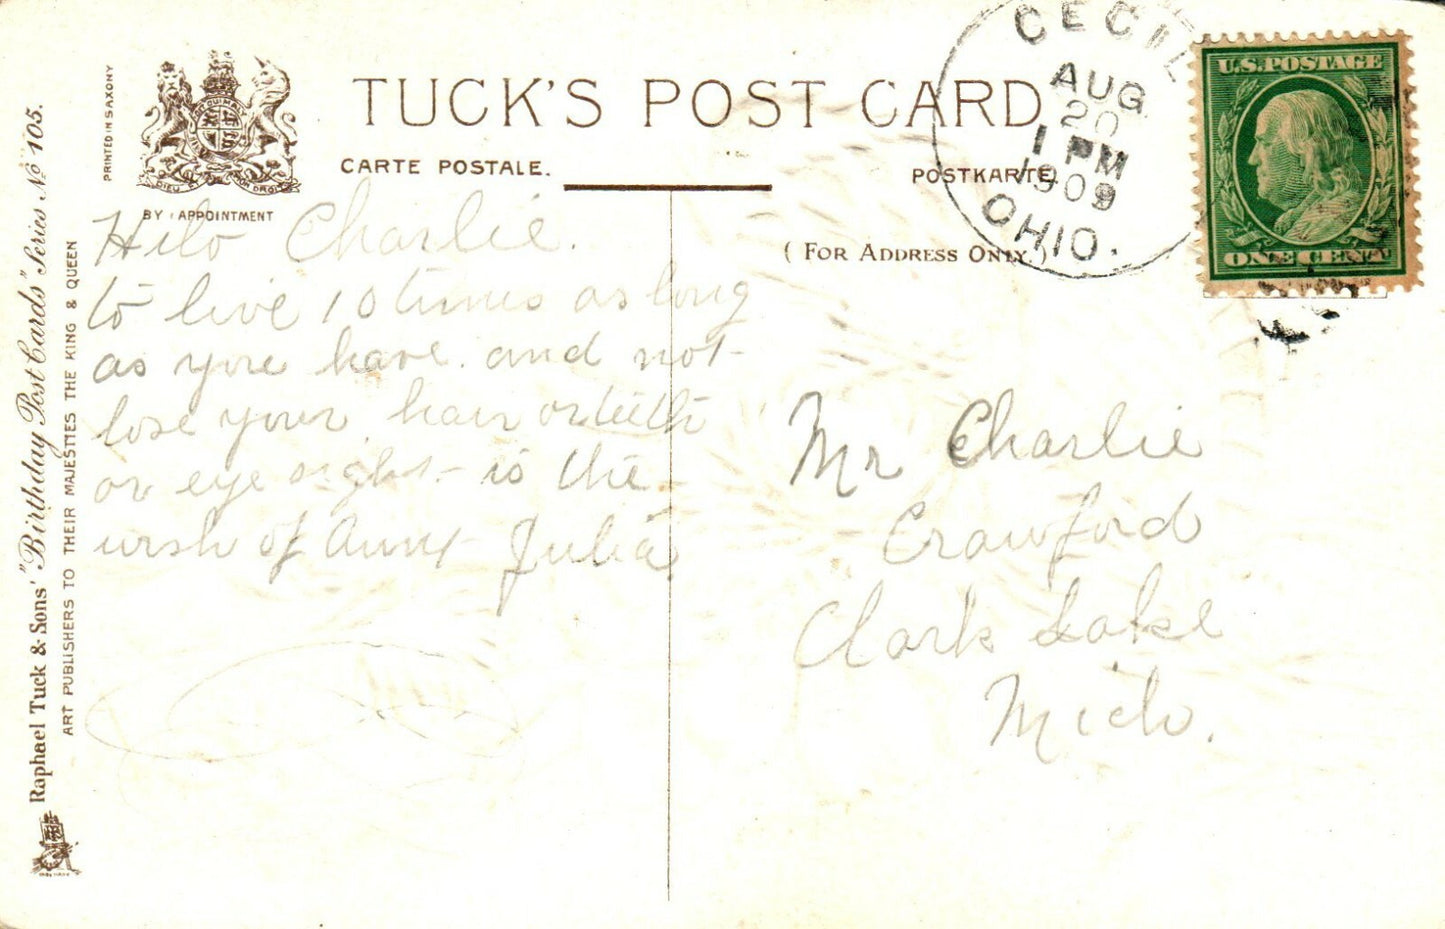 TUCK'S POST CARD
CARTE POSTALE.
POSTKARTE
(FOR ADDRESS ONLY.)
BY APPOINTMENT
PRINTED IN SAXONY
DIEU ET MON DROIT
Raphael Tuck & Sons' "Birthday Post Cards" Series No 105.
ART PUBLISHERS TO THEIR MAJESTIES THE KING & QUEEN
CECIL
AUG
20
1 PM
1909
OHIO.
U.S. POSTAGE
ONE CENT
Hilo Charlie.
to live 10 times as long
as you have. and not
lose your hair or teeth
or eye sight is the
wish of Aunt Julia
Mr Charlie
Crawford
Clark Lake
Mich.